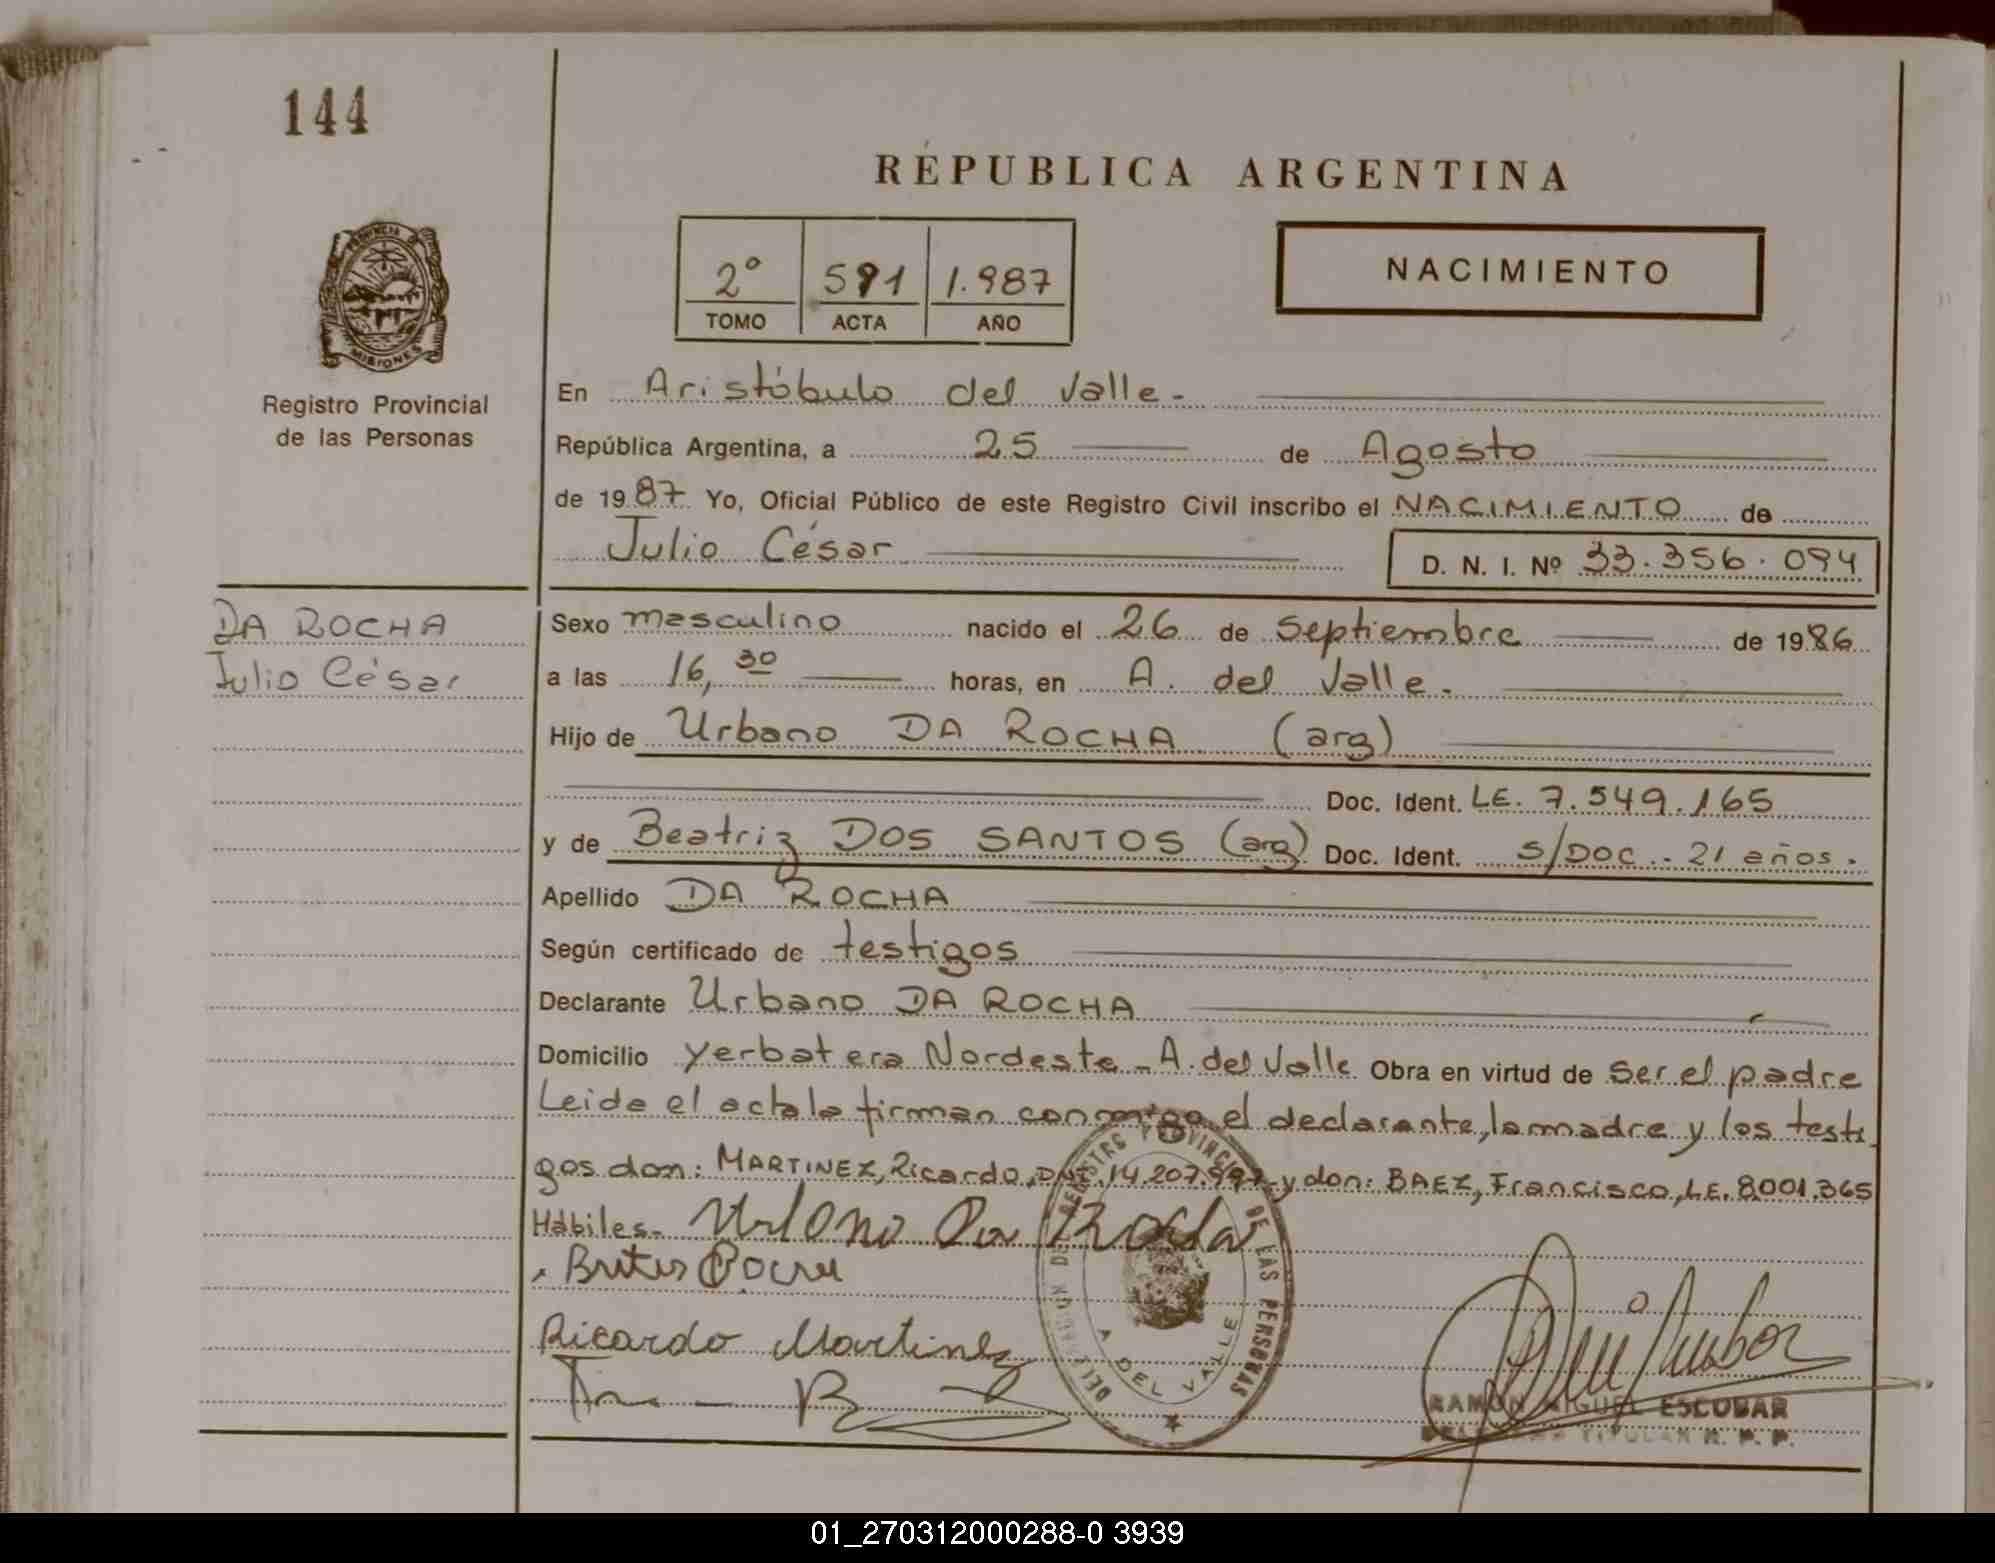 144
REPUBLICA ARGENTINA
PROVINCIA DE
MISIONES
Registro Provincial
de las Personas
2° 591 1.987
TOMO ACTA AÑO
NACIMIENTO
En Aristóbulo del Valle.-
República Argentina, a 25 de Agosto
de 1987 Yo, Oficial Público de este Registro Civil inscribo el NACIMIENTO de
Julio César
D. N. I. Nº 33.356.094
DA ROCHA
Julio César
Sexo masculino nacido el 26 de Septiembre de 1986
a las 16,30 horas, en A. del Valle.
Hijo de Urbano DA ROCHA (arg)
Doc. Ident. LE. 7.549.165
y de Beatriz DOS SANTOS (arg) Doc. Ident. S/DOC.- 21 años.
Apellido DA ROCHA
Según certificado de testigos
Declarante Urbano DA ROCHA
Domicilio Yerbatera Nordeste - A. del Valle Obra en virtud de ser el padre
Leida el acta la firman conmigo el declarante, la madre y los testi
gos don: MARTINEZ, Ricardo, DNI. 14.207.997 y don: BAEZ, Francisco, LE. 8001.365
Hábiles.- Urbano Da Rocha
Ricardo Martinez
DEL REGISTRO PROVINCIAL DE LAS PERSONAS
A DEL VALLE
RAMON MIGUEL ESCOBAR
TITULAR R. P. P.
01_270312000288-0 3939